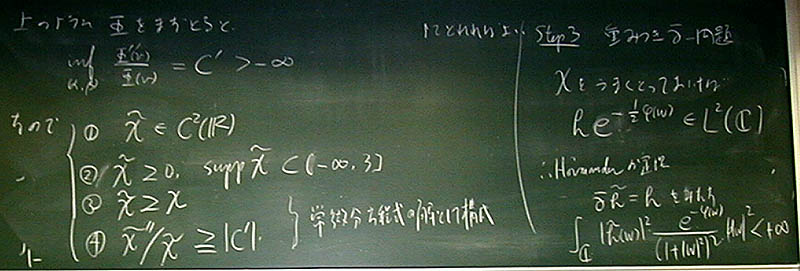 上のように Φ をまずとると
inf Φ''(v)/Φ(v) = C' > -∞
① χ̃ ∈ C²(ℝ)
② χ̃ ≥ 0, supp χ̃ ⊂ (-∞, 3]
③ χ̃ ≥ χ
④ χ̃''/χ̃ ≥ |C'|.
常微分方程式の解として構成
にとれればよい
Step 3 重みつき ∂̄-問題
χ をうまくとっておけば
h e^{-½φ(w)} ∈ L²(ℂ)
∴ Hörmander の定理
∂̄h̃ = h をみたす
∫_ℂ |h̃(w)|² e^{-φ(w)}/(1+|w|²)² |dw|² < +∞